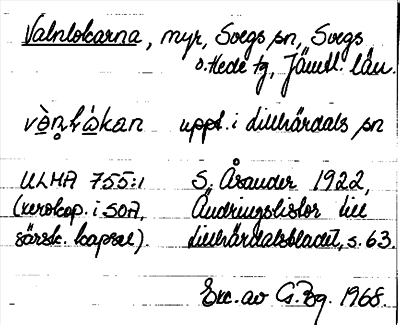 Valnlokarna, myr, Svegs sn, Svegs
o. Hede tg, Jämtl. län.
uppt. i Lillhärdals sn
ULMA 755:1 S. Åsander 1922,
(xerokop. i SOA, Ändringslistor till
särsk. kapsel). Lillhärdalsbladet, s. 63.
Exc. av G. Bg. 1968.